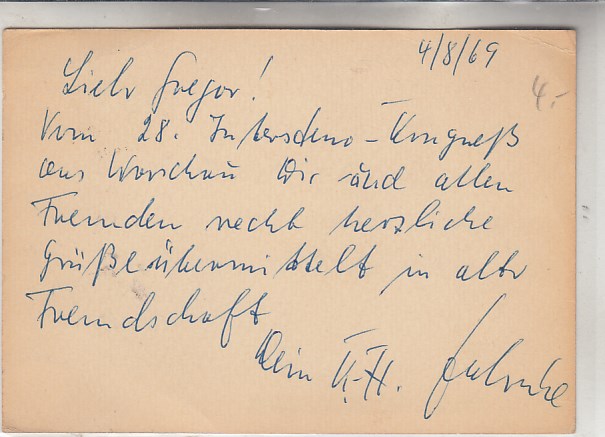 4/8/69
4.-
Lieber Gregor!
Vom 28. Intersteno-Kongreß
aus Warschau Dir und allen
Freunden recht herzliche
Grüße übermittelt in alter
Freundschaft
Dein K.-H.